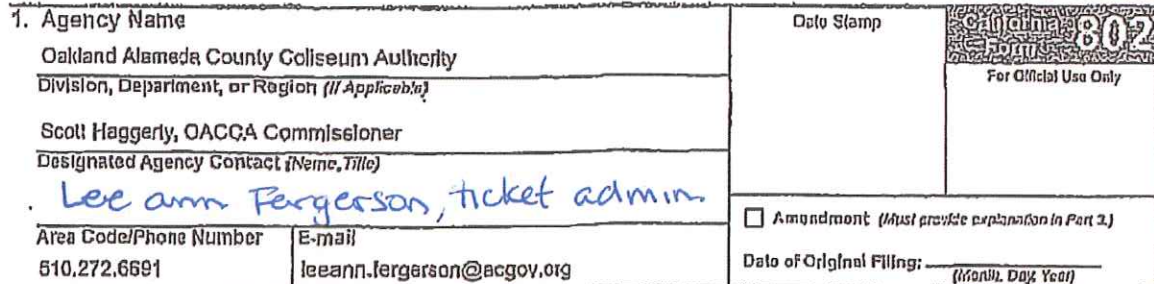 1. Agency Name
Oakland Alameda County Coliseum Authority
Division, Department, or Region (If Applicable)
Scott Haggerty, OACCA Commissioner
Designated Agency Contact (Name, Title)
Lee ann Fergerson, ticket admin
Area Code/Phone Number
510.272.6691
E-mail
leeann.fergerson@acgov.org
Date Stamp
California Form 802
For Official Use Only
Amendment (Must provide explanation in Part 3.)
Date of Original Filing:
(Month, Day, Year)